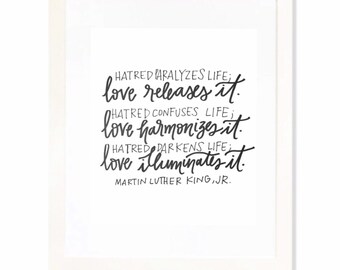 HATRED PARALYZES LIFE;
love releases it.
HATRED CONFUSES LIFE;
love harmonizes it.
HATRED DARKENS LIFE;
love illuminates it.
MARTIN LUTHER KING, JR.